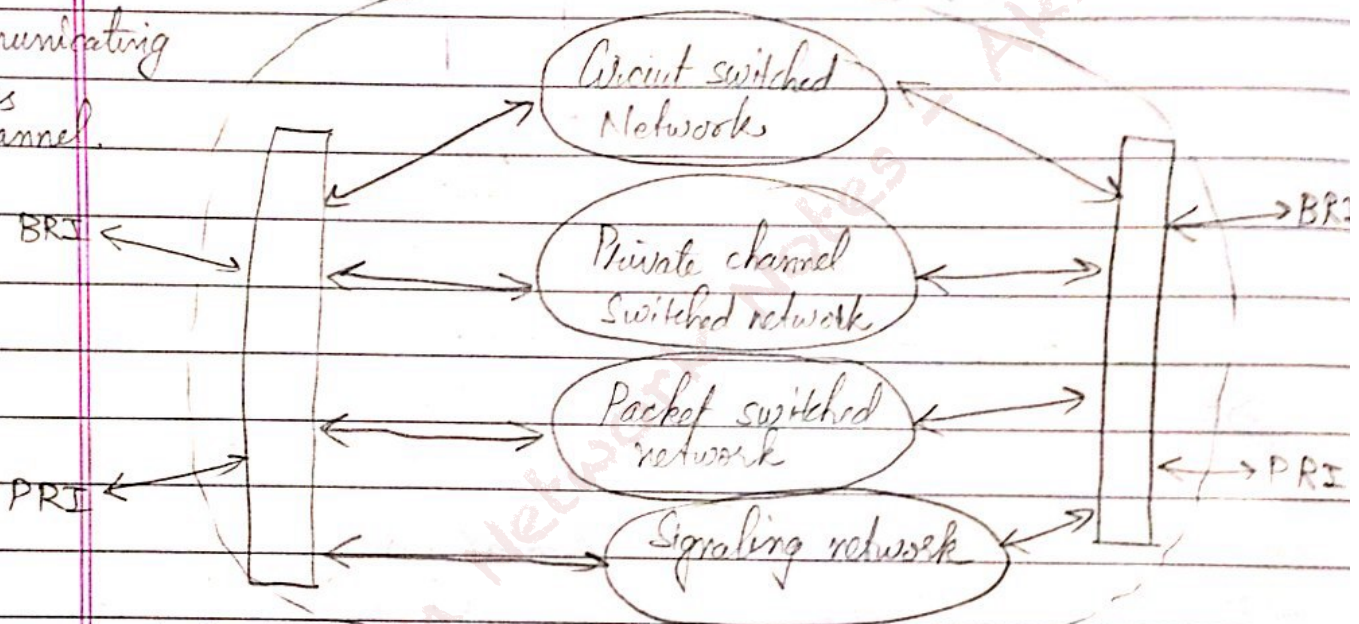 municating
s
annel.
Circuit switched
Network
Private channel
Switched network
Packet switched
network
Signaling network
BRI
PRI
BRI
PRI
Network Notes
- Ak